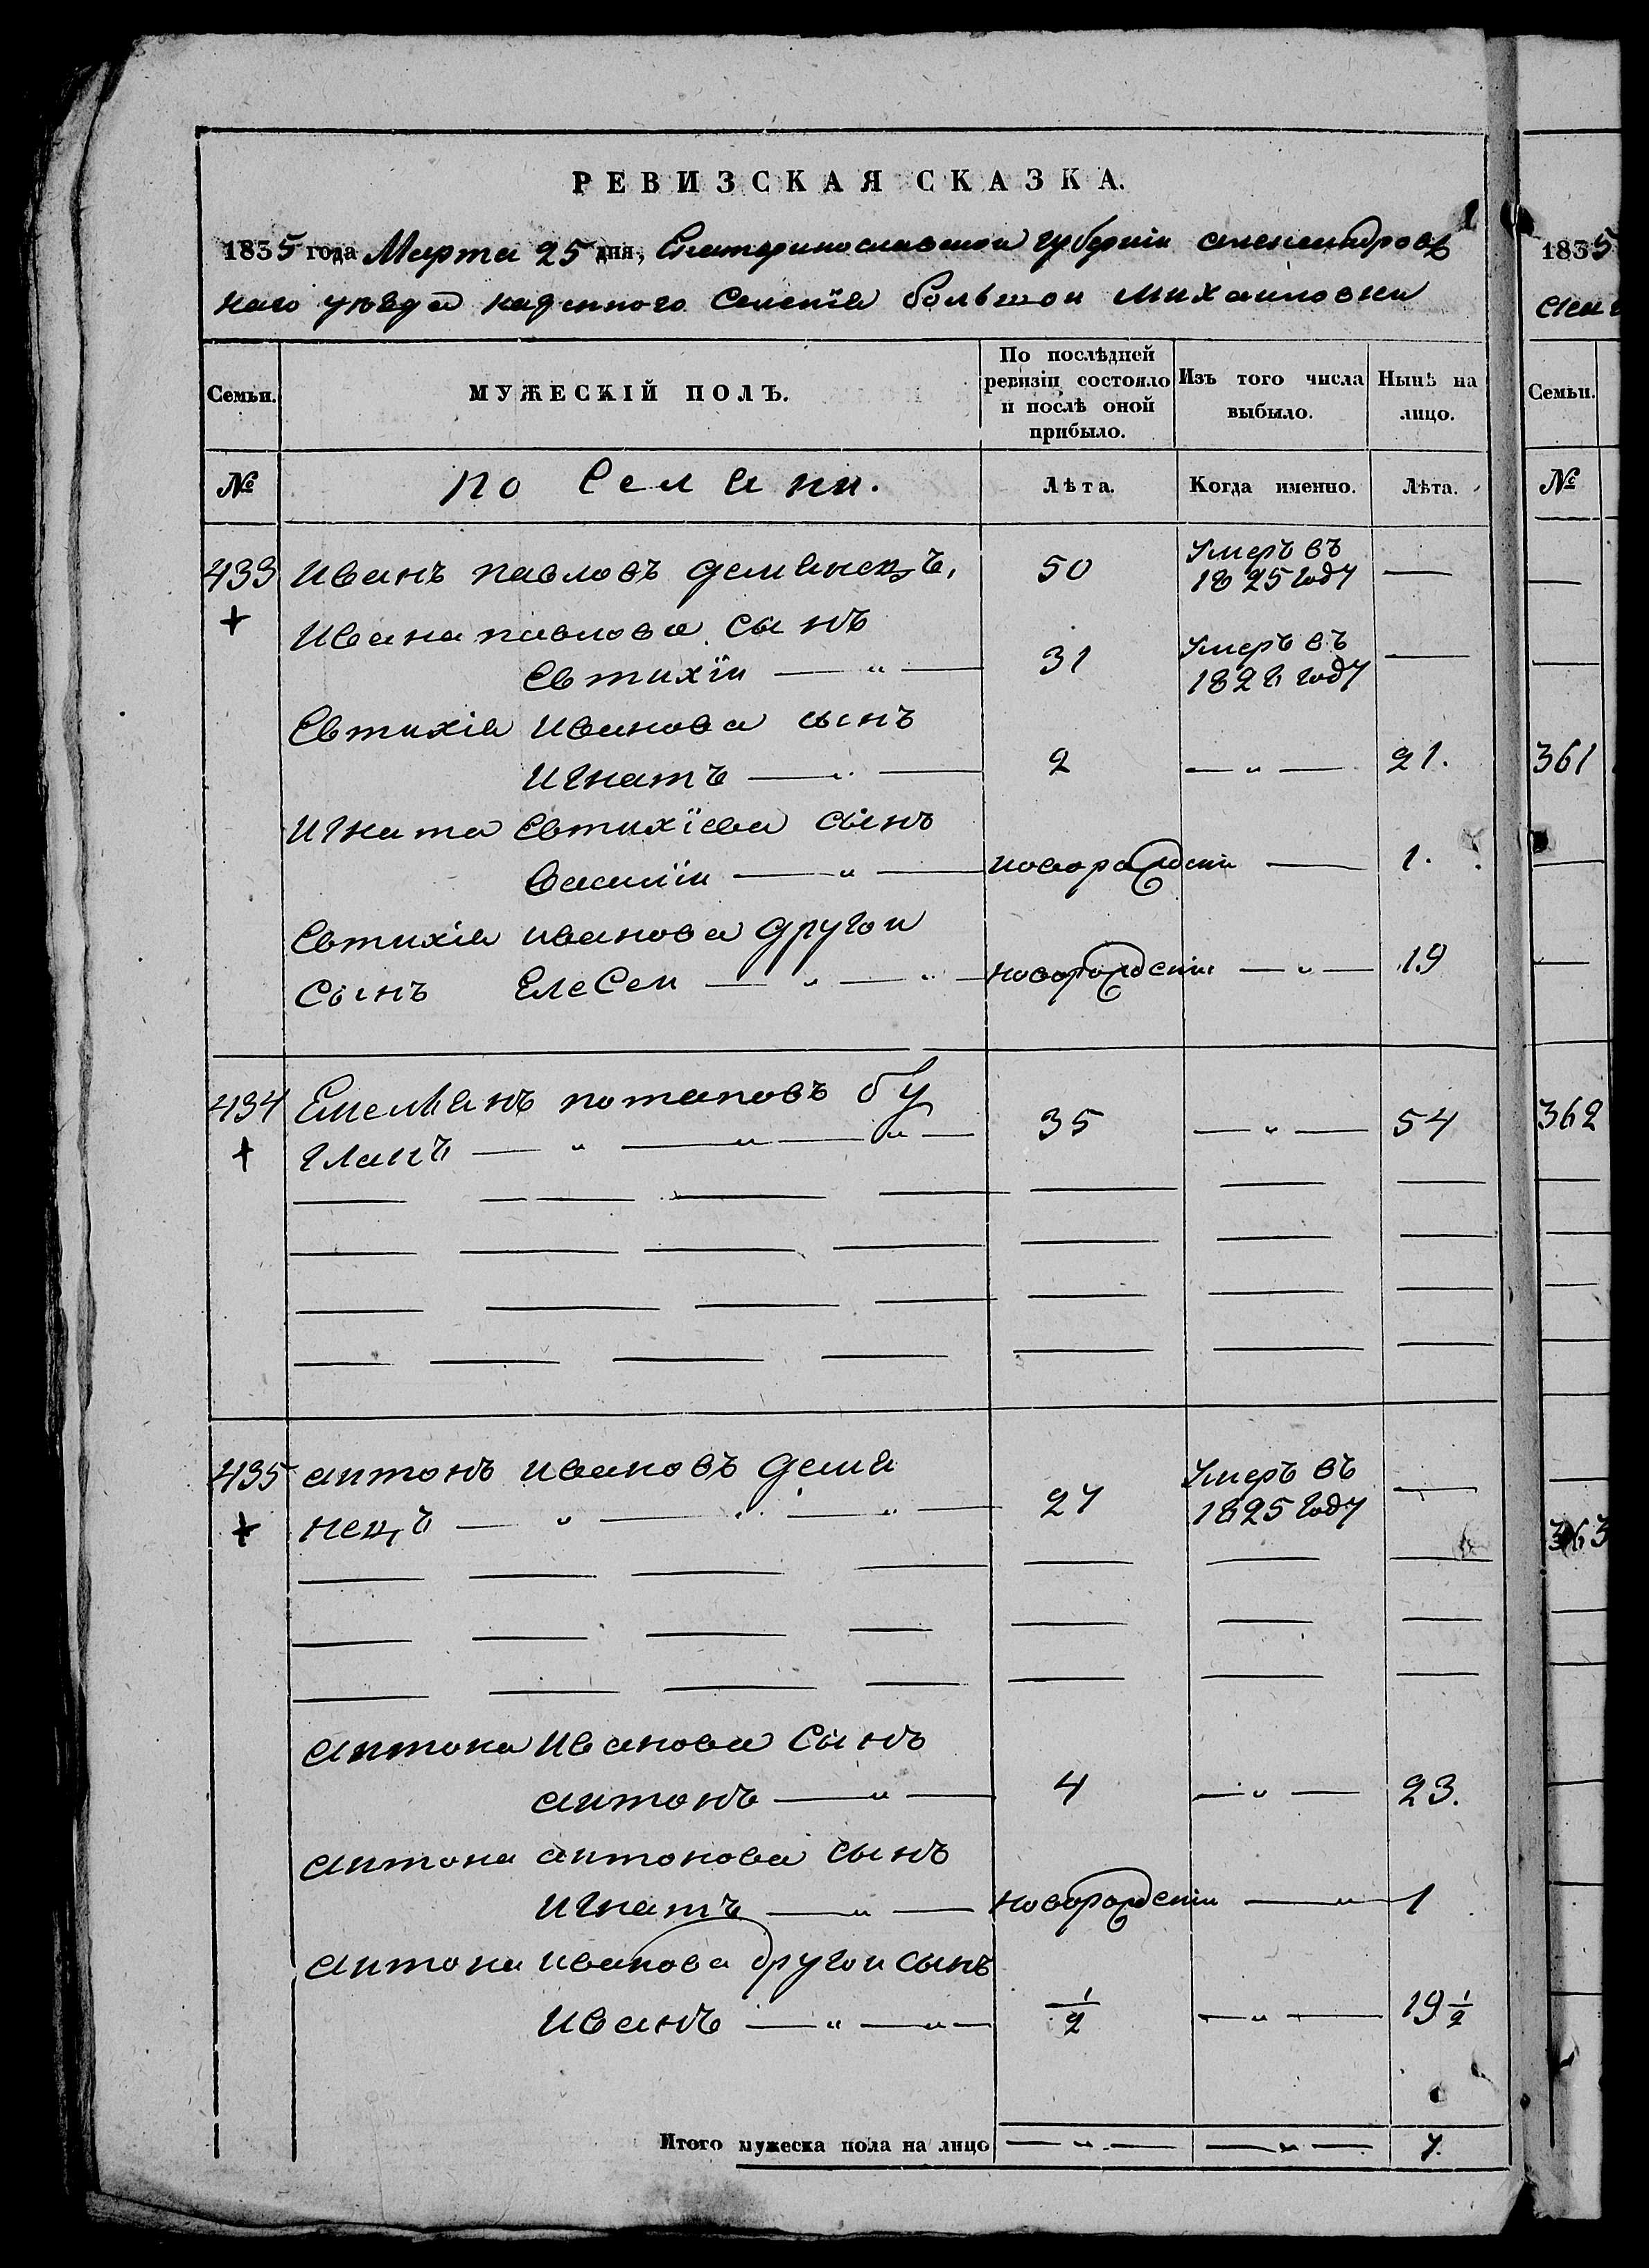 РЕВИЗСКАЯ СКАЗКА.
1835 года Марта 25 дня, Екатеринославской губерніи александровс
каго уѣзда казенного Селенія большой михаиловки
Семьи. МУЖЕСКІЙ ПОЛЪ. По послѣдней ревизіи состояло и послѣ оной прибыло. Изъ того числа выбыло. Нынѣ на лицо.
№ поселяни. Лѣта. Когда именно. Лѣта.
433 Иванъ павловъ демянецъ, 50 Умеръ въ 1825 году —
Ивана павлова сынъ
Евтихїи — „ — 31 Умеръ въ году —
Евтихія Иванова сынъ
Игнатъ — „ — 2 — „ — 21.
Игната Евтихїева сынъ
Василїи — „ — новорожденіи — 1.
Евтихія иванова другои
сынъ Елесеи — „ — „ — новорожденіи — „ — 19
434 Емельянъ потаповъ бу
гланъ — „ — „ — „ — 35 — „ — 54
435 антонъ ивановъ демя
нецъ — „ — „ — „ — 27 Умеръ въ 1825 году —
антона Иванова Сынъ
антонъ — „ — 4 — „ — 23.
антона антонова сынъ
Игнатъ — „ — новорожденіи — „ — 1
антона иванова другои сынъ
Иванъ — „ — „ — 1/2 — „ — 19 1/2
Итого мужеска пола на лицо — „ — — „ — 7.
1835
Семьи.
№
361
362
363